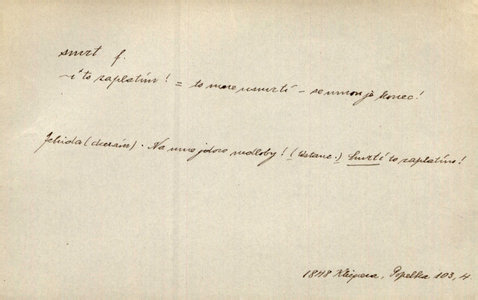 smrt f.
~í to zaplatím! = to mne usmrtí – se mnou je konec!
Jehuda (kácen). Na mne jdou mdloby! (Vstane.) Smrtí to zaplatím!
1848 Klicpera, Popelka 103, 4.